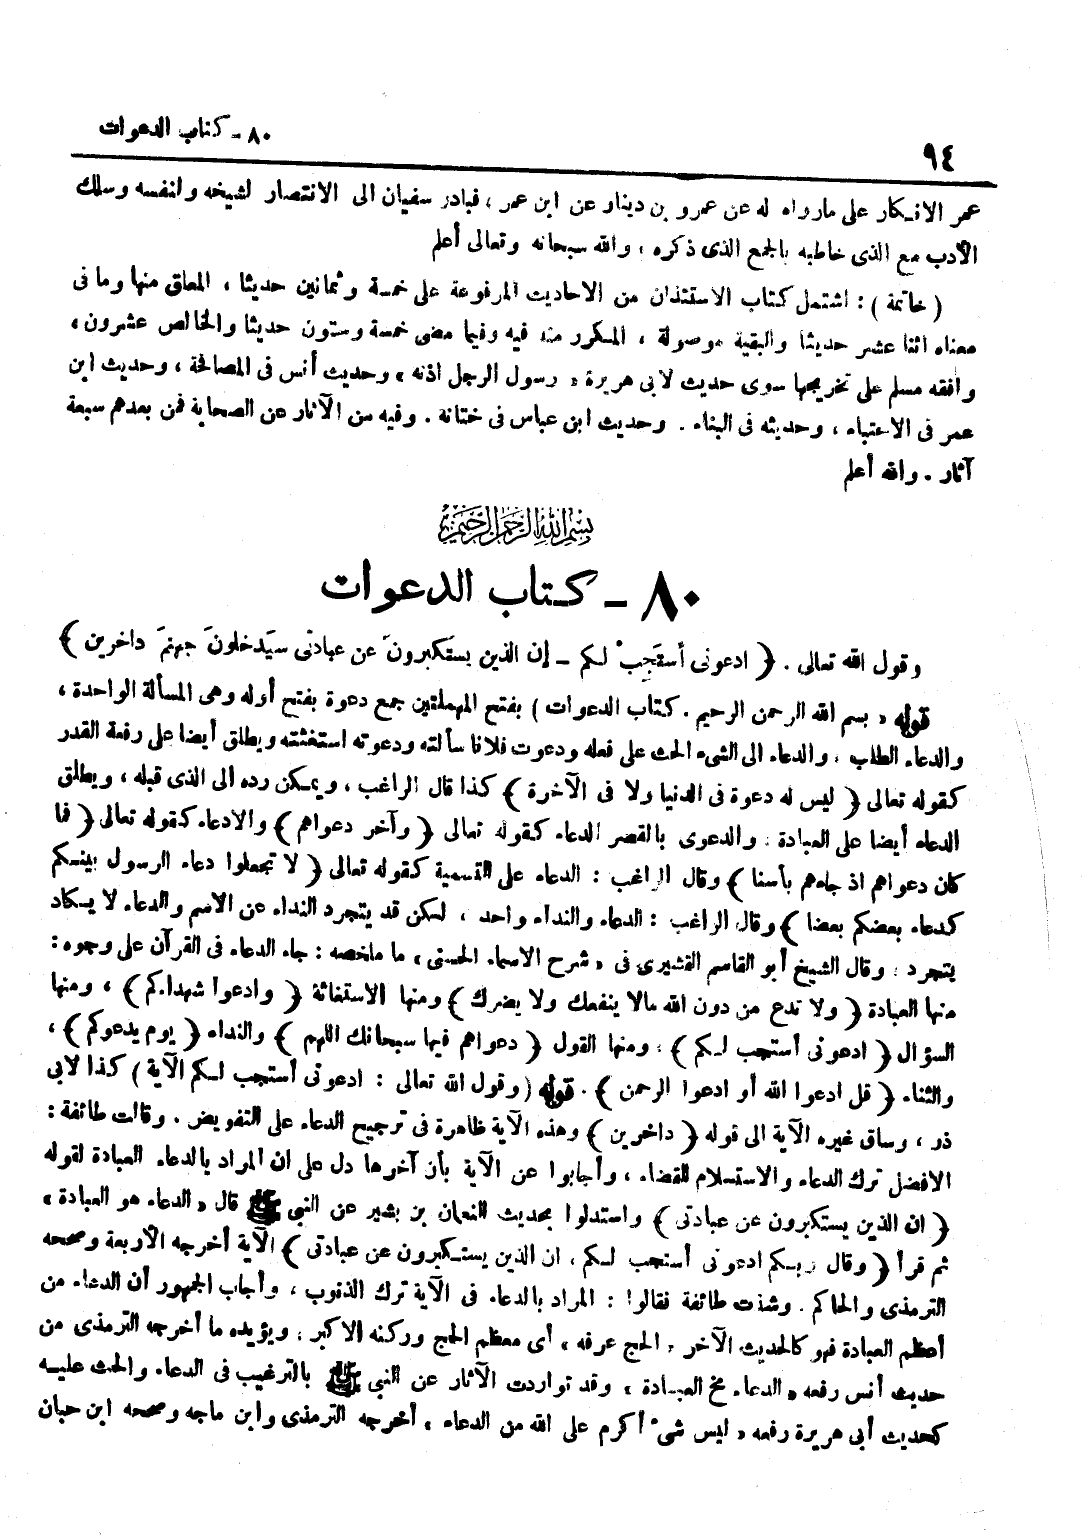 ٨٠ - كتاب الدعوات
٩٤
عمر الانكار على مارواه له عن عمرو بن دينار عن ابن عمر ، فبادر سفيان الى الانتصار لشيخه ولنفسه وسلك
الأدب مع الذى خاطبه بالجمع الذى ذكره ، والله سبحانه وتعالى أعلم
( خاتمة ) : اشتمل كتاب الاستئذان من الاحاديث المرفوعة على خمسة وثمانين حديثا ، المعلق منها وما فى
معناه اثنا عشر حديثا والبقية موصولة ، المكرر منه فيه وفيما مضى خمسة وستون حديثا والخالص عشرون ،
وافقه مسلم على تخريجها سوى حديث لابى هريرة « رسول الرجل اذنه » وحديث أنس فى المصافحة ، وحديث ابن
عمر فى الاحتباء ، وحديثه فى البناء . وحديث ابن عباس فى ختانه . وفيه من الآثار عن الصحابة فمن بعدهم سبعة
آثار . والله أعلم
بسم الله الرحمن الرحيم
٨٠ - كتاب الدعوات
وقول الله تعالى . ﴿ ادعونى أستَجِبْ لكم - إن الذين يستَكبرونَ عن عبادتى سيَدخلونَ جهنمَ داخرين ﴾
قوله « بسم الله الرحمن الرحيم . كتاب الدعوات ) بفتح المهملتين جمع دعوة بفتح أوله وهى المسألة الواحدة ،
والدعاء الطلب ، والدعاء الى الشىء الحث على فعله ودعوت فلانا سألته ودعوته استغثته ويطلق أيضا على رفعة القدر
كقوله تعالى ﴿ ليس له دعوة فى الدنيا ولا فى الآخرة ﴾ كذا قال الراغب ، ويمكن رده الى الذى قبله ، ويطلق
الدعاء أيضا على العبادة ، والدعوى بالقصر الدعاء كقوله تعالى ﴿ وآخر دعواهم ﴾ والادعاء كقوله تعالى ﴿ فما
كان دعواهم اذ جاءهم بأسنا ﴾ وقال الراغب : الدعاء على التسمية كقوله تعالى ﴿ لا تجعلوا دعاء الرسول بينكم
كدعاء بعضكم بعضا ﴾ وقال الراغب : الدعاء والنداء واحد ، لكن قد يتجرد النداء عن الاسم والدعاء لا يكاد
يتجرد ، وقال الشيخ أبو القاسم القشيرى فى « شرح الاسماء الحسنى » ما ملخصه : جاء الدعاء فى القرآن على وجوه :
منها العبادة ﴿ ولا تدع من دون الله مالا ينفعك ولا يضرك ﴾ ومنها الاستغاثة ﴿ وادعوا شهداءكم ﴾ ، ومنها
السؤال ﴿ ادعونى أستجب لكم ﴾ ، ومنها القول ﴿ دعواهم فيها سبحانك اللهم ﴾ والنداء ﴿ يوم يدعوكم ﴾ ،
والثناء ﴿ قل ادعوا الله أو ادعوا الرحمن ﴾ . قوله ( وقول الله تعالى : ادعونى أستجب لكم الآية ) كذا لابى
ذر ، وساق غيره الآية الى قوله ﴿ داخرين ﴾ وهذه الآية ظاهرة فى ترجيح الدعاء على التفويض . وقالت طائفة :
الافضل ترك الدعاء والاستسلام للقضاء ، وأجابوا عن الآية بأن آخرها دل على ان المراد بالدعاء العبادة لقوله
﴿ ان الذين يستكبرون عن عبادتى ﴾ واستدلوا بحديث النعمان بن بشير عن النبي ﷺ قال « الدعاء هو العبادة »
ثم قرأ ﴿ وقال ربكم ادعونى أستجب لكم ، ان الذين يستكبرون عن عبادتى ﴾ الآية أخرجه الأربعة وصححه
الترمذى والحاكم . وشذت طائفة فقالوا : المراد بالدعاء فى الآية ترك الذنوب ، وأجاب الجمهور أن الدعاء من
أعظم العبادة فهو كالحديث الآخر « الحج عرفة » أى معظم الحج وركنه الاكبر ، ويؤيده ما أخرجه الترمذى من
حديث أنس رفعه « الدعاء مخ العبادة » وقد تواردت الآثار عن النبي ﷺ بالترغيب فى الدعاء والحث عليه
كحديث أبى هريرة رفعه « ليس شىء أكرم على الله من الدعاء » أخرجه الترمذى وابن ماجه وصححه ابن حبان